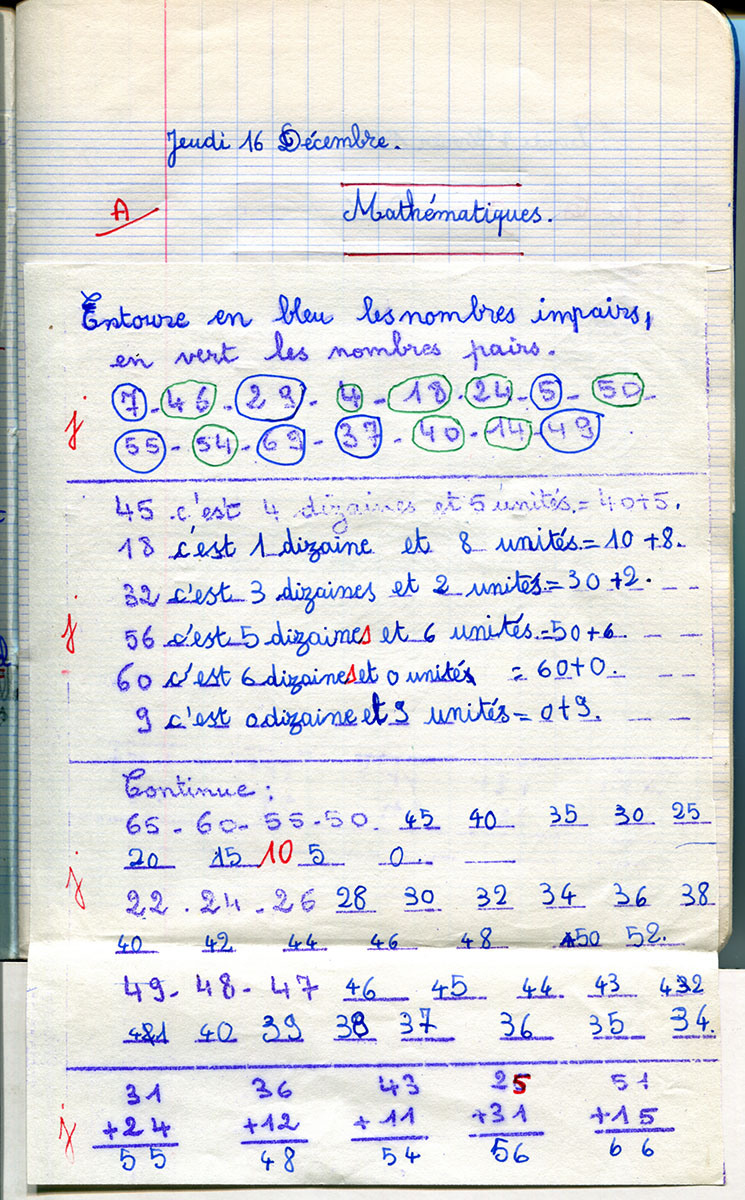 Jeudi 16 Décembre.
A
Mathématiques.
Entoure en bleu les nombres impairs,
en vert les nombres pairs.
7 - 46 - 29 - 4 - 18 - 24 - 5 - 50 -
j
55 - 54 - 69 - 37 - 40 - 14 - 49
45 c'est 4 dizaines et 5 unités = 40+5.
18 c'est 1 dizaine et 8 unités = 10+8.
32 c'est 3 dizaines et 2 unités = 30+2.
j
56 c'est 5 dizaines et 6 unités = 50+6
60 c'est 6 dizaines et 0 unités = 60+0.
9 c'est 0 dizaine et 9 unités = 0+9.
Continue :
65 - 60 - 55 - 50. 45 40 35 30 25
20 15 10 5 0.
j
22 - 24 - 26 28 30 32 34 36 38
40 42 44 46 48 50 52.
49 - 48 - 47 46 45 44. 43 42
41 40 39 38 37 36 35 34.
31 36 43 25 51
+24 +12 +11 +31 +15
j
55 48 54 56 66